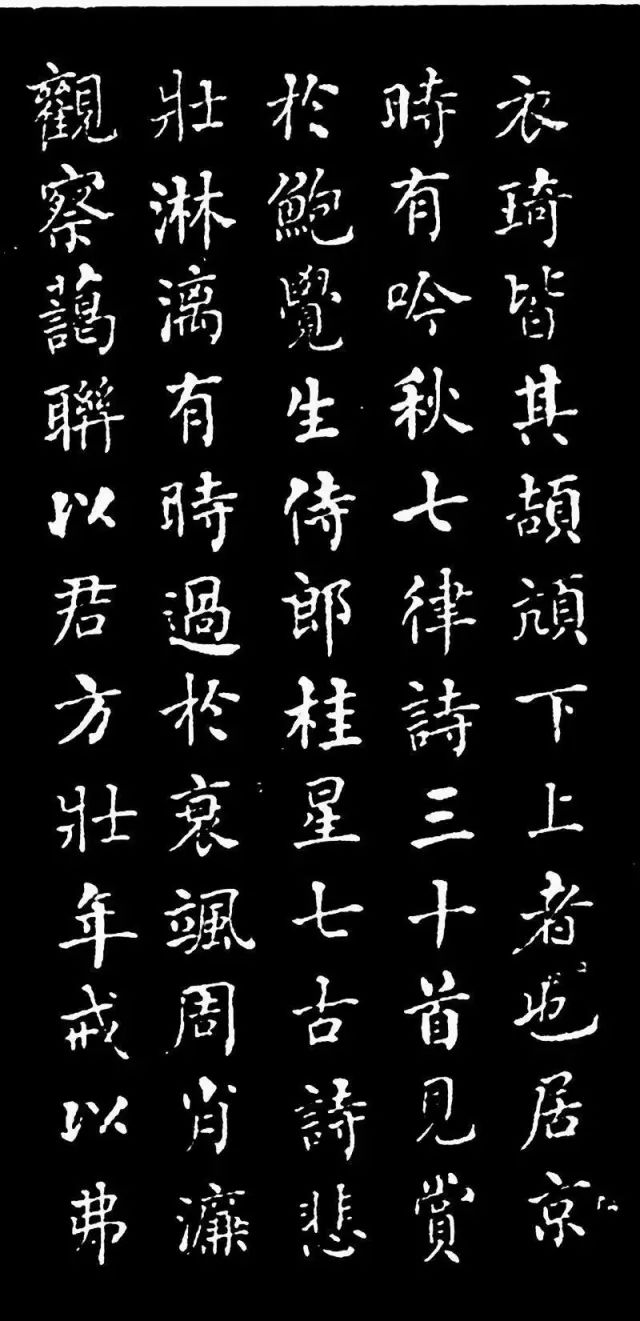 衣琦皆其頡頏下上者也居京
時有吟秋七律詩三十首見賞
於鮑覺生侍郎桂星七古詩悲
壯淋漓有時過於衰颯周肖濂
觀察藹聯以君方壯年戒以弗